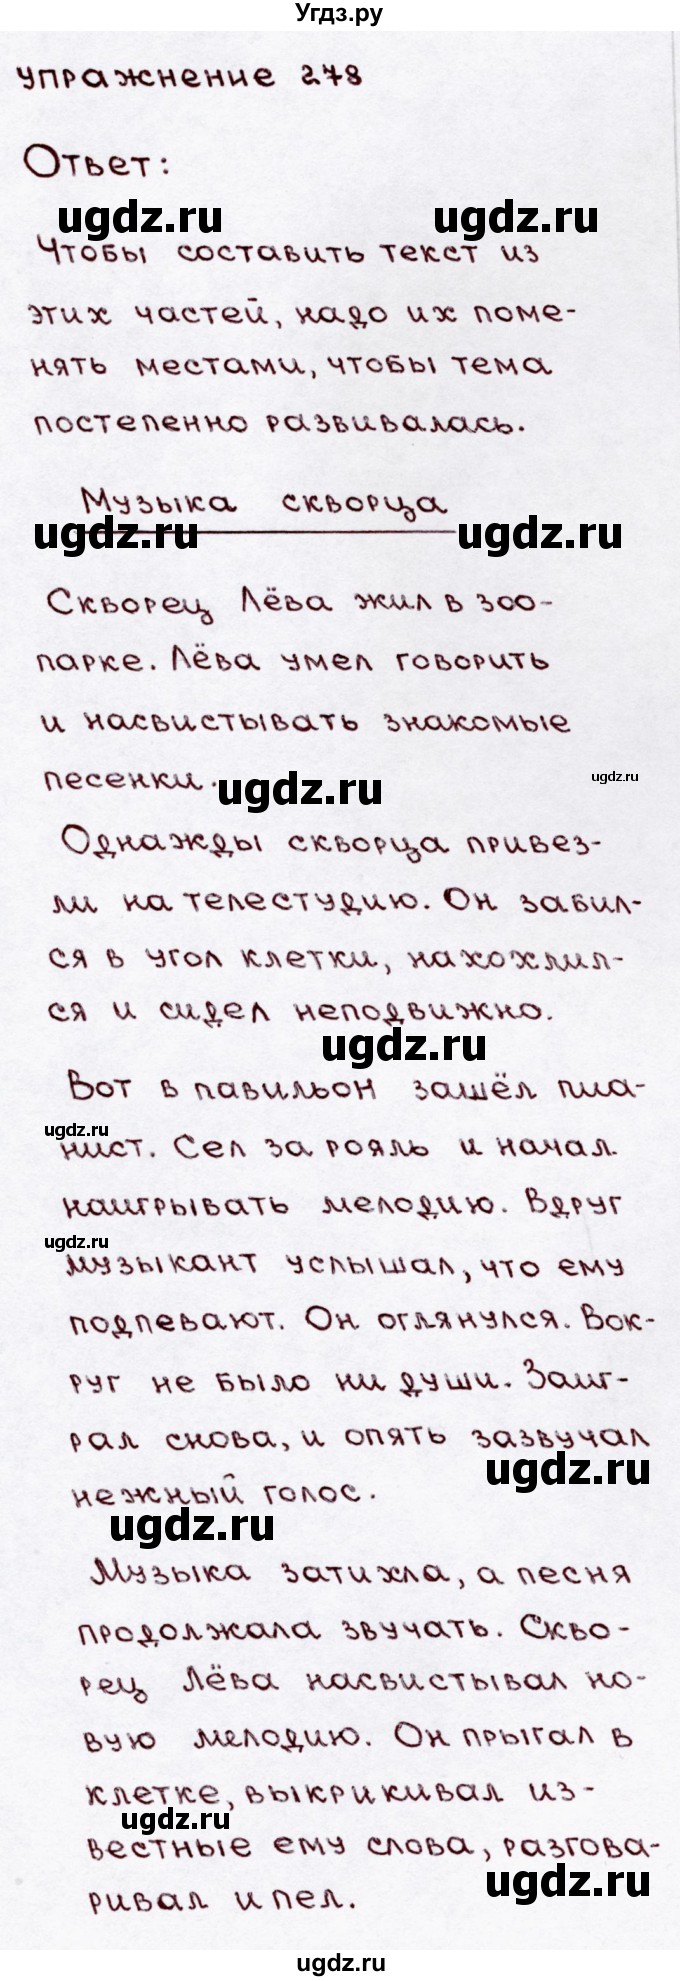 Угдз.ру
упражнение 278
Ответ:
ugdz.ru ugdz.ru
Чтобы составить текст из
этих частей, надо их поме-
нять местами, чтобы тема
постепенно развивалась.
Музыка скворца
ugdz.ru ugdz.ru
Скворец Лёва жил в зоо-
парке. Лёва умел говорить
и насвистывать знакомые
песенки.
ugdz.ru ugdz.ru
Однажды скворца привез-
ли на телестудию. Он забил-
ся в угол клетки, нахохлил-
ся и сидел неподвижно.
ugdz.ru
Вот в павильон зашёл пиа-
ugdz.ru
нист. Сел за рояль и начал
наигрывать мелодию. Вдруг
ugdz.ru
музыкант услышал, что ему
подпевают. Он оглянулся. Вок-
руг не было ни души. Заиг-
рал снова, и опять зазвучал
ugdz.ru
нежный голос.
ugdz.ru
Музыка затихла, а песня
продолжала звучать. Скво-
рец Лёва насвистывал но-
вую мелодию. Он прыгал в
клетке, выкрикивал из-
ugdz.ru
вестные ему слова, разгова-
ugdz.ru
ривал и пел.
ugdz.ru